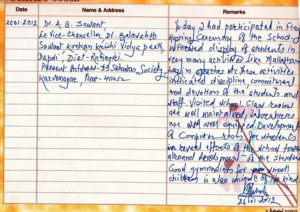 Date
Name & Address
Remarks
26.01.2012
Dr. A. G. Sawant
Ex vice-Chancellor, Dr. Balasaheb
Sawant Konkan Krishi Vidyapeeth,
Dapoli, Dist-Ratnagiri
Present Address-
Society,
Karvenagar, Pune-411052
Today I had participated in Flag
Hoisting Ceremony of the School &
witnessed display of students in
very many activities like Malkhamb
etc. These activities
indicated discipline, commitment
and devotion of the students and
staff. Visited school. Class rooms
are well maintained, laboratories
are well equipped. Developing
a Computer room for students
is
development of the students.
Good gymnasium for small
children is also unique of its kind.
26/01/2012